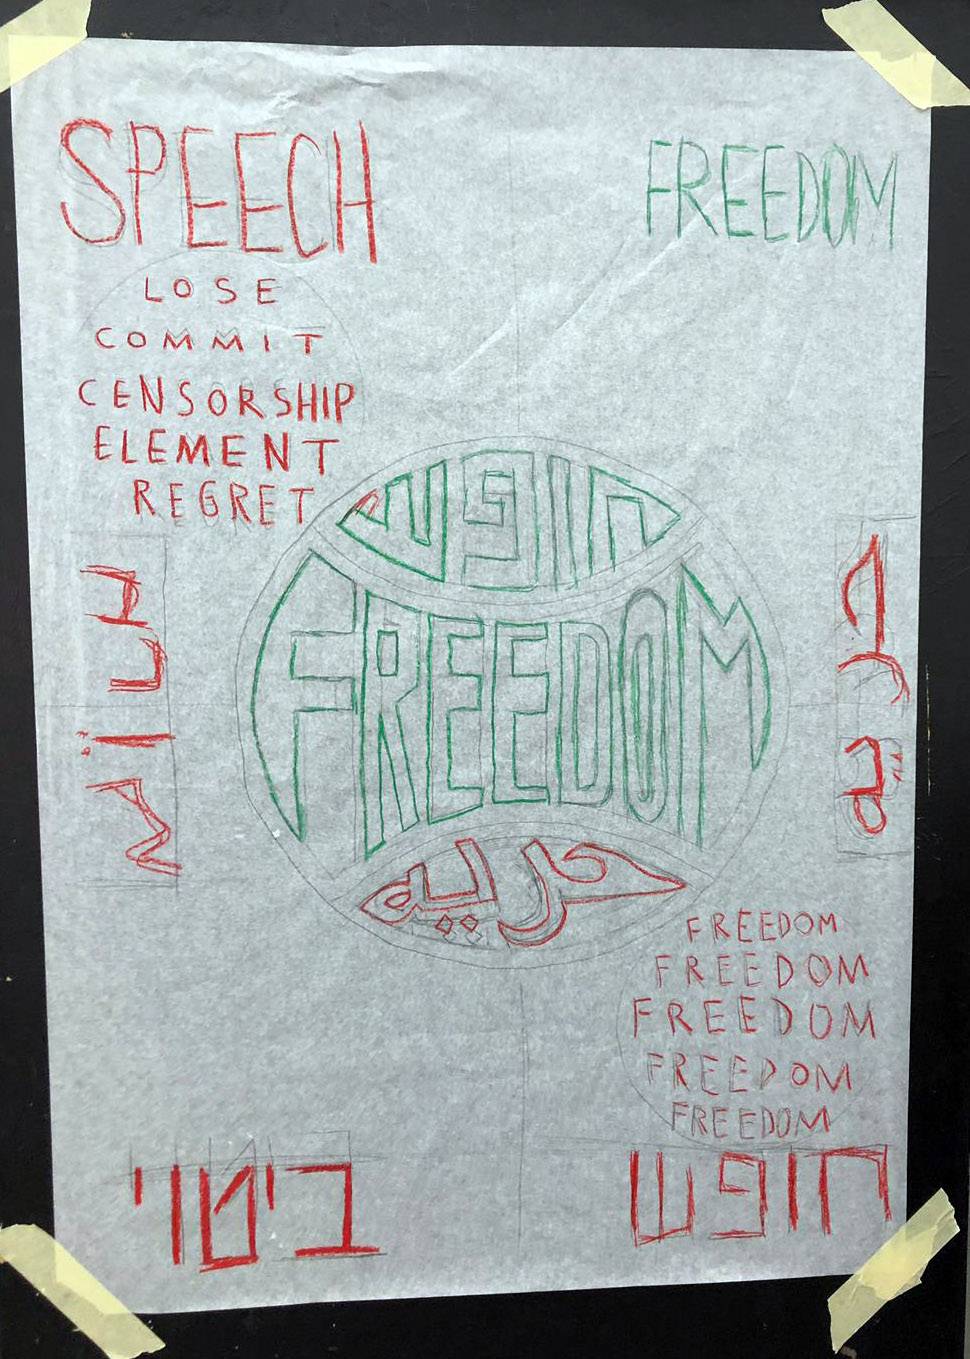 SPEECH
FREEDOM
LOSE
COMMIT
CENSORSHIP
ELEMENT
REGRET
חופש
FREEDOM
حرية
حرية
FREEDOM
FREEDOM
FREEDOM
FREEDOM
FREEDOM
חופש ביטוי